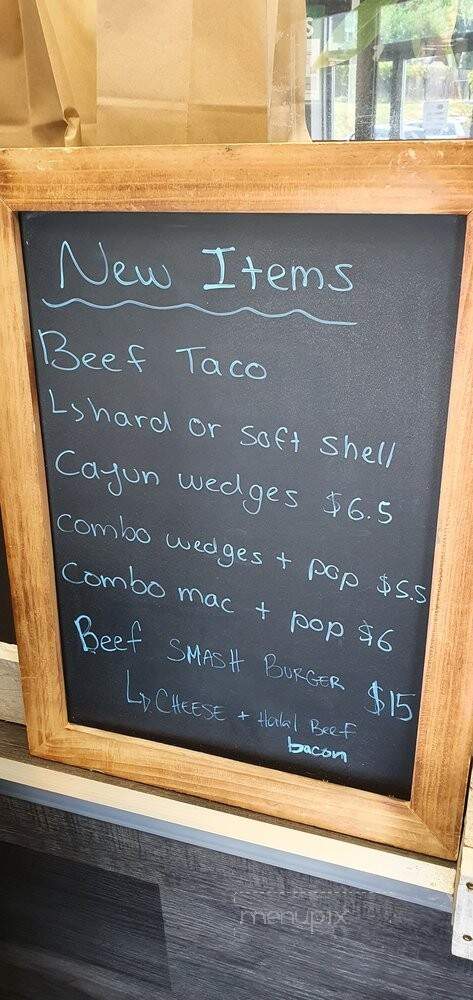 New Items
Beef Taco
↳ hard or soft shell
Cajun wedges $6.5
combo wedges + pop $5.5
combo mac + pop $6
Beef SMASH BURGER $15
↳ CHEESE + Halal Beef
bacon
menupix